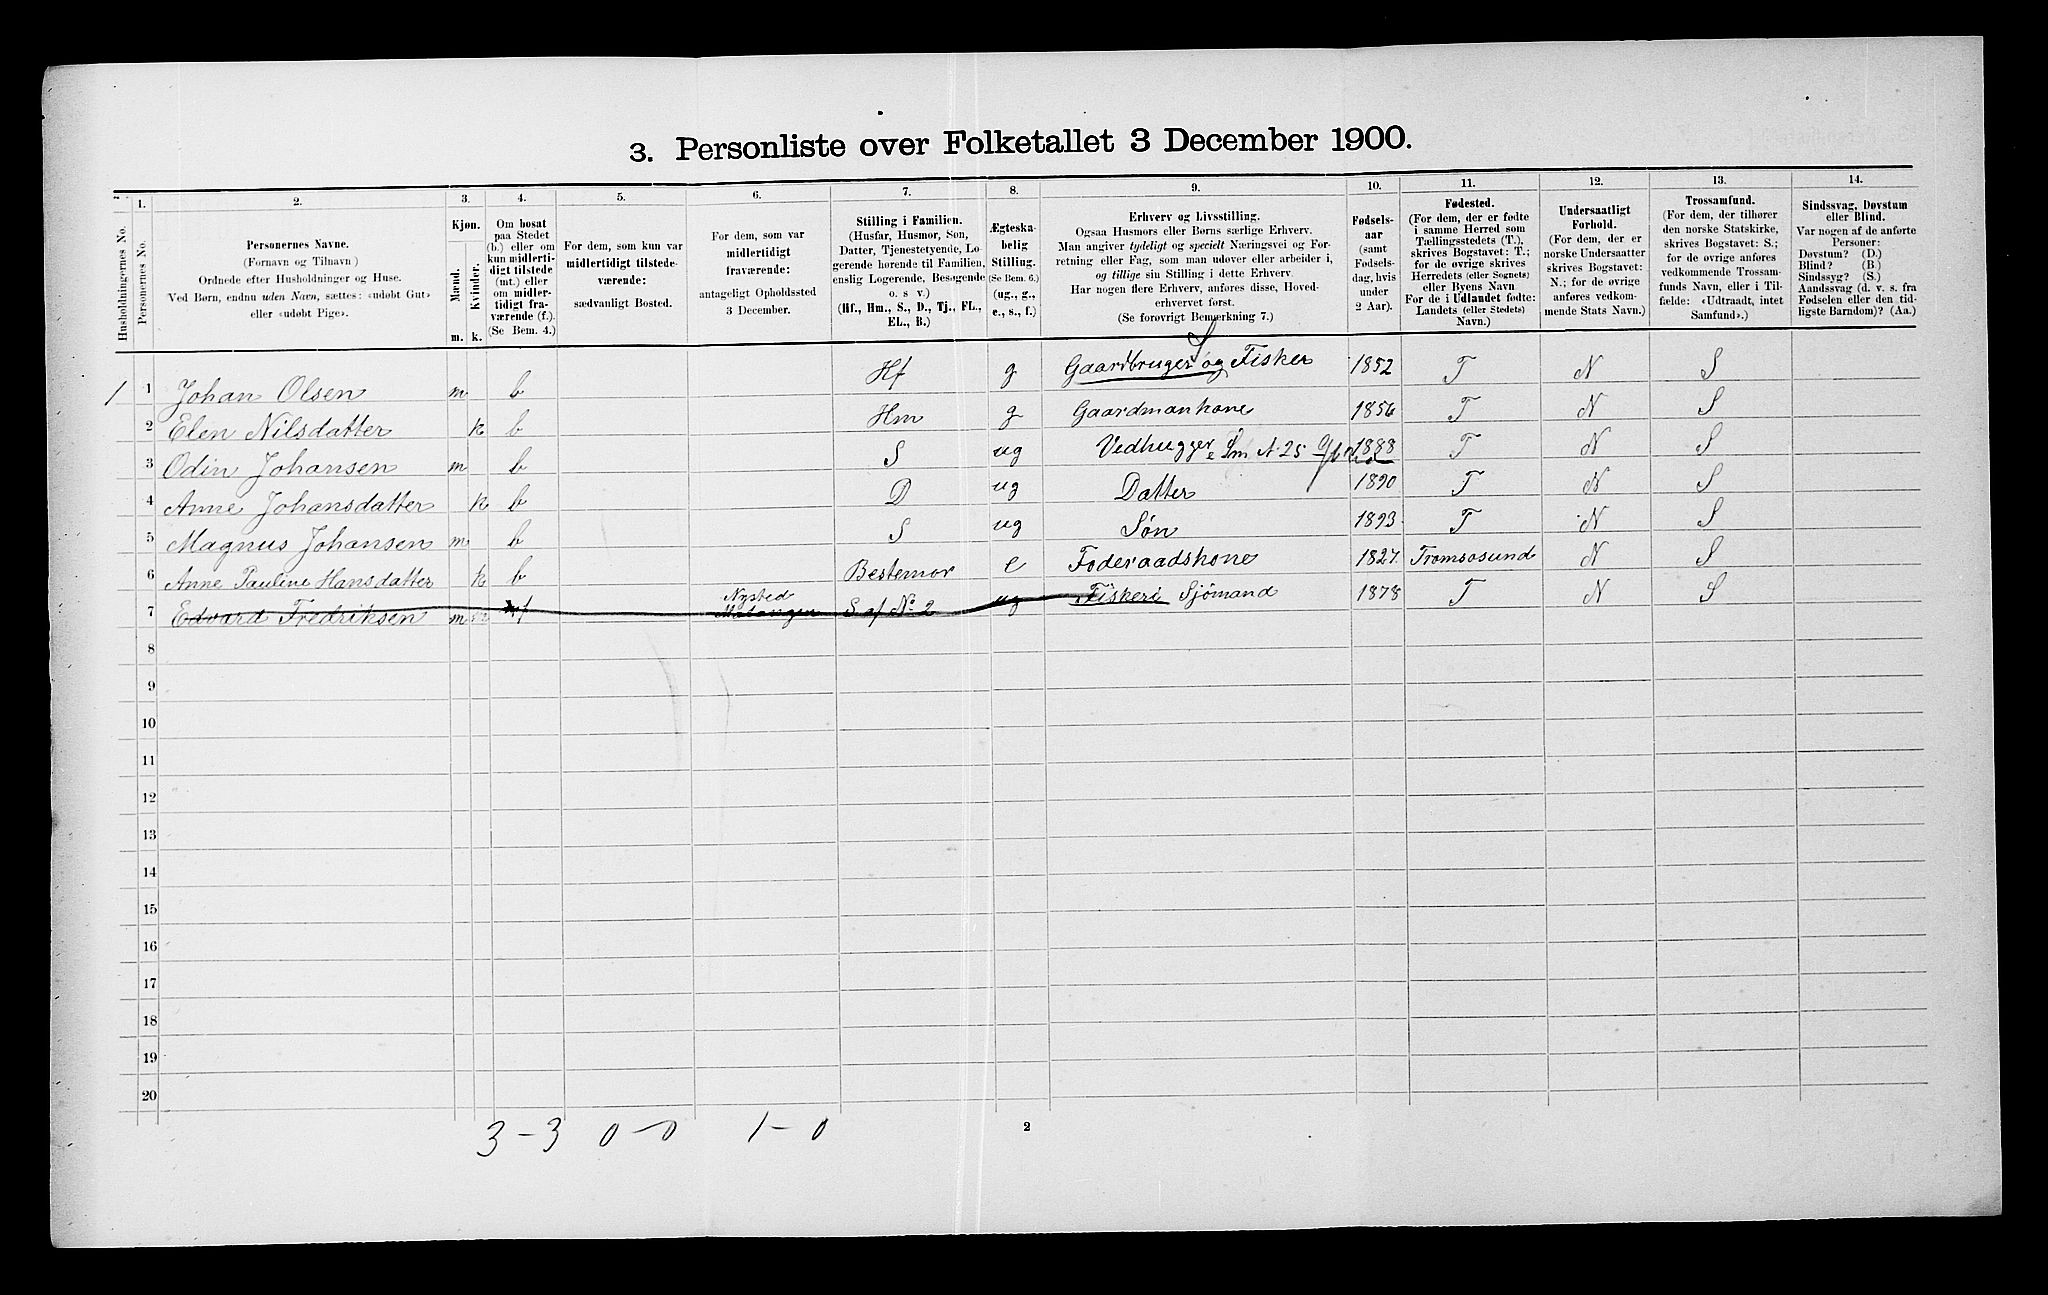 3. Personliste over Folketallet 3 December 1900.
1. 2. 3. 4. 5. 6. 7. 8. 9. 10. 11. 12. 13. 14.
Husholdningernes No.
Personernes No.
Personernes Navne.
(Fornavn og Tilnavn)
Ordnede efter Husholdninger og Huse.
Ved Børn, endnu uden Navn, sættes: «udøbt Gut»
eller «udøbt Pige».
Kjøn.
Mænd.
Kvinder.
m. k.
Om bosat
paa Stedet
(b.) eller om
kun midler-
tidigt tilstede
(mt.) eller
om midler-
tidigt fra-
værende (f.).
(Se Bem. 4.)
For dem, som kun var
midlertidigt tilstede-
værende:
sædvanligt Bosted.
For dem, som var
midlertidigt
fraværende:
antageligt Opholdssted
3 December.
Stilling i Familien.
(Husfar, Husmor, Søn,
Datter, Tjenestetyende, Lo-
gerende hørende til Familien,
enslig Logerende, Besøgende
o. s v.)
(Hf., Hm., S., D., Tj., FL.,
EL., B.)
Ægteska-
belig
Stilling.
(Se Bem. 6.)
(ug., g.,
e., s., f.)
Erhverv og Livsstilling.
Ogsaa Husmors eller Børns særlige Erhverv.
Man angiver tydeligt og specielt Næringsvei og For-
retning eller Fag, som man udøver eller arbeider i,
og tillige sin Stilling i dette Erhverv.
Har nogen flere Erhverv, anføres disse, Hoved-
erhvervet først.
(Se forøvrigt Bemærkning 7.)
Fødsels-
aar
(samt
Fødsels-
dag, hvis
under
2 Aar).
Fødested.
(For dem, der er fødte
i samme Herred som
Tællingsstedets (T.),
skrives Bogstavet: T.;
for de øvrige skrives
Herredets (eller Sognets)
eller Byens Navn
For de i Udlandet fødte:
Landets (eller Stedets)
Navn.)
Undersaatligt
Forhold.
(For dem, der er
norske Undersaatter
skrives Bogstavet:
N.; for de øvrige
anføres vedkom-
mende Stats Navn.)
Trossamfund.
(For dem, der tilhører
den norske Statskirke,
skrives Bogstavet: S.;
for de øvrige anføres
vedkommende Trossam-
funds Navn, eller i Til-
fælde: «Udtraadt, intet
Samfund».)
Sindssvag, Døvstum
eller Blind.
Var nogen af de anførte
Personer:
Døvstum? (D.)
Blind? (B)
Sindssyg? (S.)
Aandssvag (d. v. s. fra
Fødselen eller den tid-
ligste Barndom)? (Aa.)
1 1 Johan Olsen m b Hf g Gaardbruger S og Fisker 1852 T N S
2 Elen Nilsdatter k b Hm g Gaardmankone 1856 T N S
3 Odin Johansen m b S ug Vedhugger 1888 T N S
4 Anne Johansdatter k b D ug Datter 1890 T N S
5 Magnus Johansen m b S ug Søn 1893 T N S
6 Anne Pauline Hansdatter k b Bestemor e Foderaadskone 1827 Tromsosund N S
7 Edvard Fredriksen m f Nysted Malangen S. af No 2 ug Fiskeri Sjømand 1878 T N S
8
9
10
11
12
13
14
15
16
17
18
19
20
3-3 0-0 1-0
2